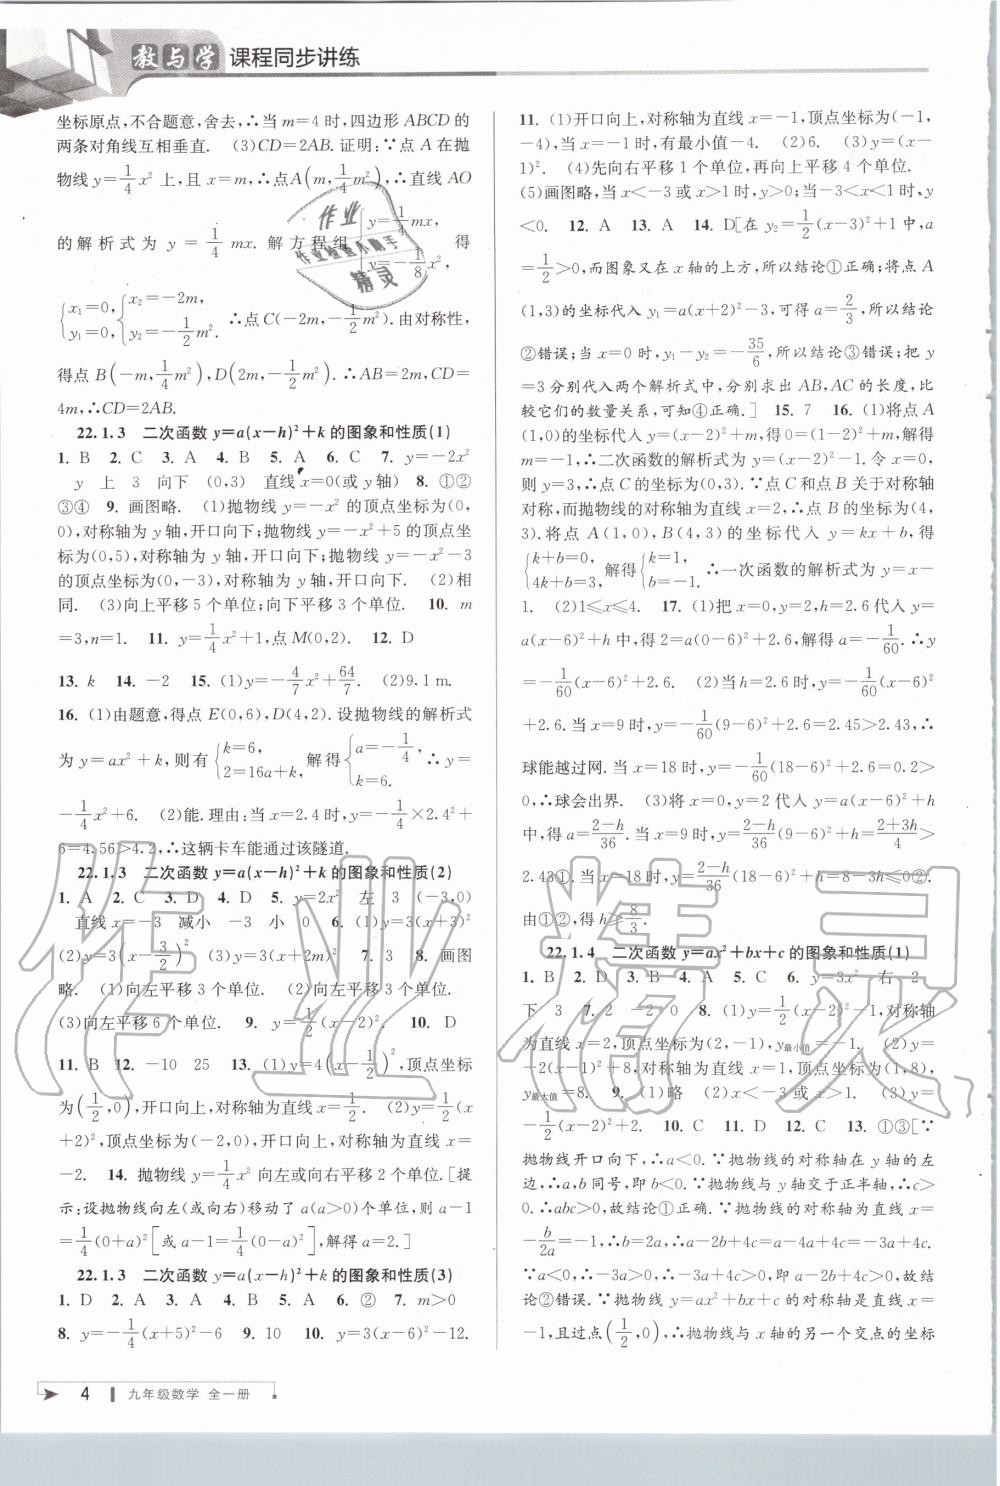 教与学 课程同步讲练
坐标原点,不合题意,舍去,∴当 m=4 时,四边形 ABCD 的
两条对角线互相垂直. (3)CD=2AB. 证明:∵点 A 在抛
物线 y=1/4x² 上,且 x=m,∴点A(m,1/4m²),∴直线 AO
的解析式为 y=1/4mx. 解方程组{y=1/4mx, y=-1/8x², 得
{x₁=0, y₁=0, {x₂=-2m, y₂=-1/2m². ∴点 C(-2m,-1/2m²). 由对称性,
得点 B(-m,1/4m²),D(2m,-1/2m²). ∴AB=2m,CD=
4m,∴CD=2AB.
22.1.3 二次函数 y=a(x-h)²+k 的图象和性质(1)
1. B 2. C 3. A 4. B 5. A 6. C 7. y=-2x²
y 上 3 向下 (0,3) 直线 x=0(或 y 轴) 8. ①②
③④ 9. 画图略. (1)抛物线 y=-x² 的顶点坐标为(0,
0),对称轴为 y 轴,开口向下;抛物线 y=-x²+5 的顶点坐
标为(0,5),对称轴为 y 轴,开口向下;抛物线 y=-x²-3
的顶点坐标为(0,-3),对称轴为 y 轴,开口向下. (2)相
同. (3)向上平移 5 个单位;向下平移 3 个单位. 10. m
=3,n=1. 11. y=1/4x²+1,点 M(0,2). 12. D
13. k 14. -2 15. (1)y=-4/7x²+64/7. (2)9.1 m.
16. (1)由题意,得点 E(0,6),D(4,2). 设抛物线的解析式
为 y=ax²+k,则有{k=6, 2=16a+k, 解得{a=-1/4, k=6. ∴y=
-1/4x²+6. (2)能. 理由:当 x=2.4 时,y=-1/4×2.4²+
6=4.56>4.2,∴这辆卡车能通过该隧道.
22.1.3 二次函数 y=a(x-h)²+k 的图象和性质(2)
1. A 2. C 3. D 4. D 5. y=2x² 左 3 (-3,0)
直线 x=-3 减小 -3 小 0 6. (1)y=3(x+3)²
(2)y=3(x-3/2)² (3)y=3(x+2m)² 7. 3 8. 画图
略. (1)向左平移 3 个单位. (2)向左平移 3 个单位.
(3)向左平移 6 个单位. 9. y=1/2(x-2)². 10. D
11. B 12. -10 25 13. (1)y=4(x-1/2)²,顶点坐标
为(1/2,0),开口向上,对称轴为直线 x=1/2. (2)y=1/2(x
+2)²,顶点坐标为(-2,0),开口向上,对称轴为直线 x=
-2. 14. 抛物线 y=1/4x² 向左或向右平移 2 个单位. [提
示:设抛物线向左(或向右)移动了 a(a>0)个单位,则 a-1=
1/4(0+a)²[或 a-1=1/4(0-a)²],解得 a=2.]
22.1.3 二次函数 y=a(x-h)²+k 的图象和性质(3)
1. D 2. A 3. A 4. B 5. A 6. ② 7. m>0
8. y=-1/4(x+5)²-6 9. 10 10. y=3(x-6)²-12.
11. (1)开口向上,对称轴为直线 x=-1,顶点坐标为(-1,
-4),当 x=-1 时,有最小值-4. (2)6. (3)y=(x-
1)². (4)先向右平移 1 个单位,再向上平移 4 个单位.
(5)画图略,当 x<-3 或 x>1 时,y>0;当-3<x<1 时,y
<0. 12. A 13. A 14. D[在 y₂=1/2(x-3)²+1 中,a
=1/2>0,而图象又在 x 轴的上方,所以结论①正确;将点 A
(1,3)的坐标代入 y₁=a(x+2)²-3,可得 a=2/3,所以结论
②错误;当 x=0 时,y₁-y₂=-35/6,所以结论③错误;把 y
=3 分别代入两个解析式中,分别求出 AB,AC 的长度,比
较它们的数量关系,可知④正确.] 15. 7 16. (1)将点 A
(1,0)的坐标代入 y=(x-2)²+m,得 0=(1-2)²+m,解得
m=-1,∴二次函数的解析式为 y=(x-2)²-1. 令 x=0,
则 y=3,∴点 C 的坐标为(0,3). ∵点 C 和点 B 关于对称轴
对称,而抛物线的对称轴为直线 x=2,∴点 B 的坐标为(4,
3). 将点 A(1,0),B(4,3)的坐标代入 y=kx+b,得
{k+b=0, 4k+b=3, 解得{k=1, b=-1. ∴一次函数的解析式为 y=x-
1. (2)1≤x≤4. 17. (1)把 x=0,y=2,h=2.6 代入 y=
a(x-6)²+h 中,得 2=a(0-6)²+2.6,解得 a=-1/60. ∴y
=-1/60(x-6)²+2.6. (2)当 h=2.6 时,y=-1/60(x-6)²
+2.6. 当 x=9 时,y=-1/60(9-6)²+2.6=2.45>2.43,∴
球能越过网. 当 x=18 时,y=-1/60(18-6)²+2.6=0.2>
0,∴球会出界. (3)将 x=0,y=2 代入 y=a(x-6)²+h
中,得 a=2-h/36. 当 x=9 时,y=2-h/36(9-6)²+h=2+3h/4>
2.43①. 当 x=18 时,y=2-h/36(18-6)²+h=8-3h≤0②.
由①②,得 h≥8/3.
22.1.4 二次函数 y=ax²+bx+c 的图象和性质(1)
1. B 2. D 3. B 4. A 5. C 6. y=3x² 右 2
下 3 7. 2 -2 0 8. (1)y=1/2(x-2)²-1,对称轴
为直线 x=2,顶点坐标为(2,-1),y最小值=-1. (2)y=
-2(x-1)²+8,对称轴为直线 x=1,顶点坐标为(1,8),
y最大值=8. 9. (1)略 (2)x<-3 或 x>1. (3)y=
-1/2(x-2)²+2. 10. C 11. D 12. C 13. ①③[∵
抛物线开口向下,∴a<0. ∵抛物线的对称轴在 y 轴的左
边,∴a,b 同号,即 b<0. ∵抛物线与 y 轴交于正半轴,∴c>
0. ∴abc>0,故结论①正确. ∵抛物线的对称轴为直线 x=
-b/2a=-1,∴b=2a,∴a-2b+4c=a-4a+4c=-3a+4c.
∵a<0,∴-3a>0,∴-3a+4c>0,即 a-2b+4c>0,故结
论②错误. ∵抛物线 y=ax²+bx+c 的对称轴是直线 x=
-1,且过点(1/2,0),∴抛物线与 x 轴的另一个交点的坐标
4 九年级数学 全一册
作业
作业检查小助手
精灵
作业精灵